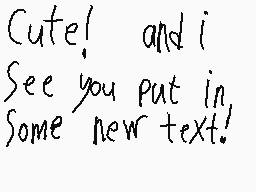 Cute! and i
See you put in
Some new text!